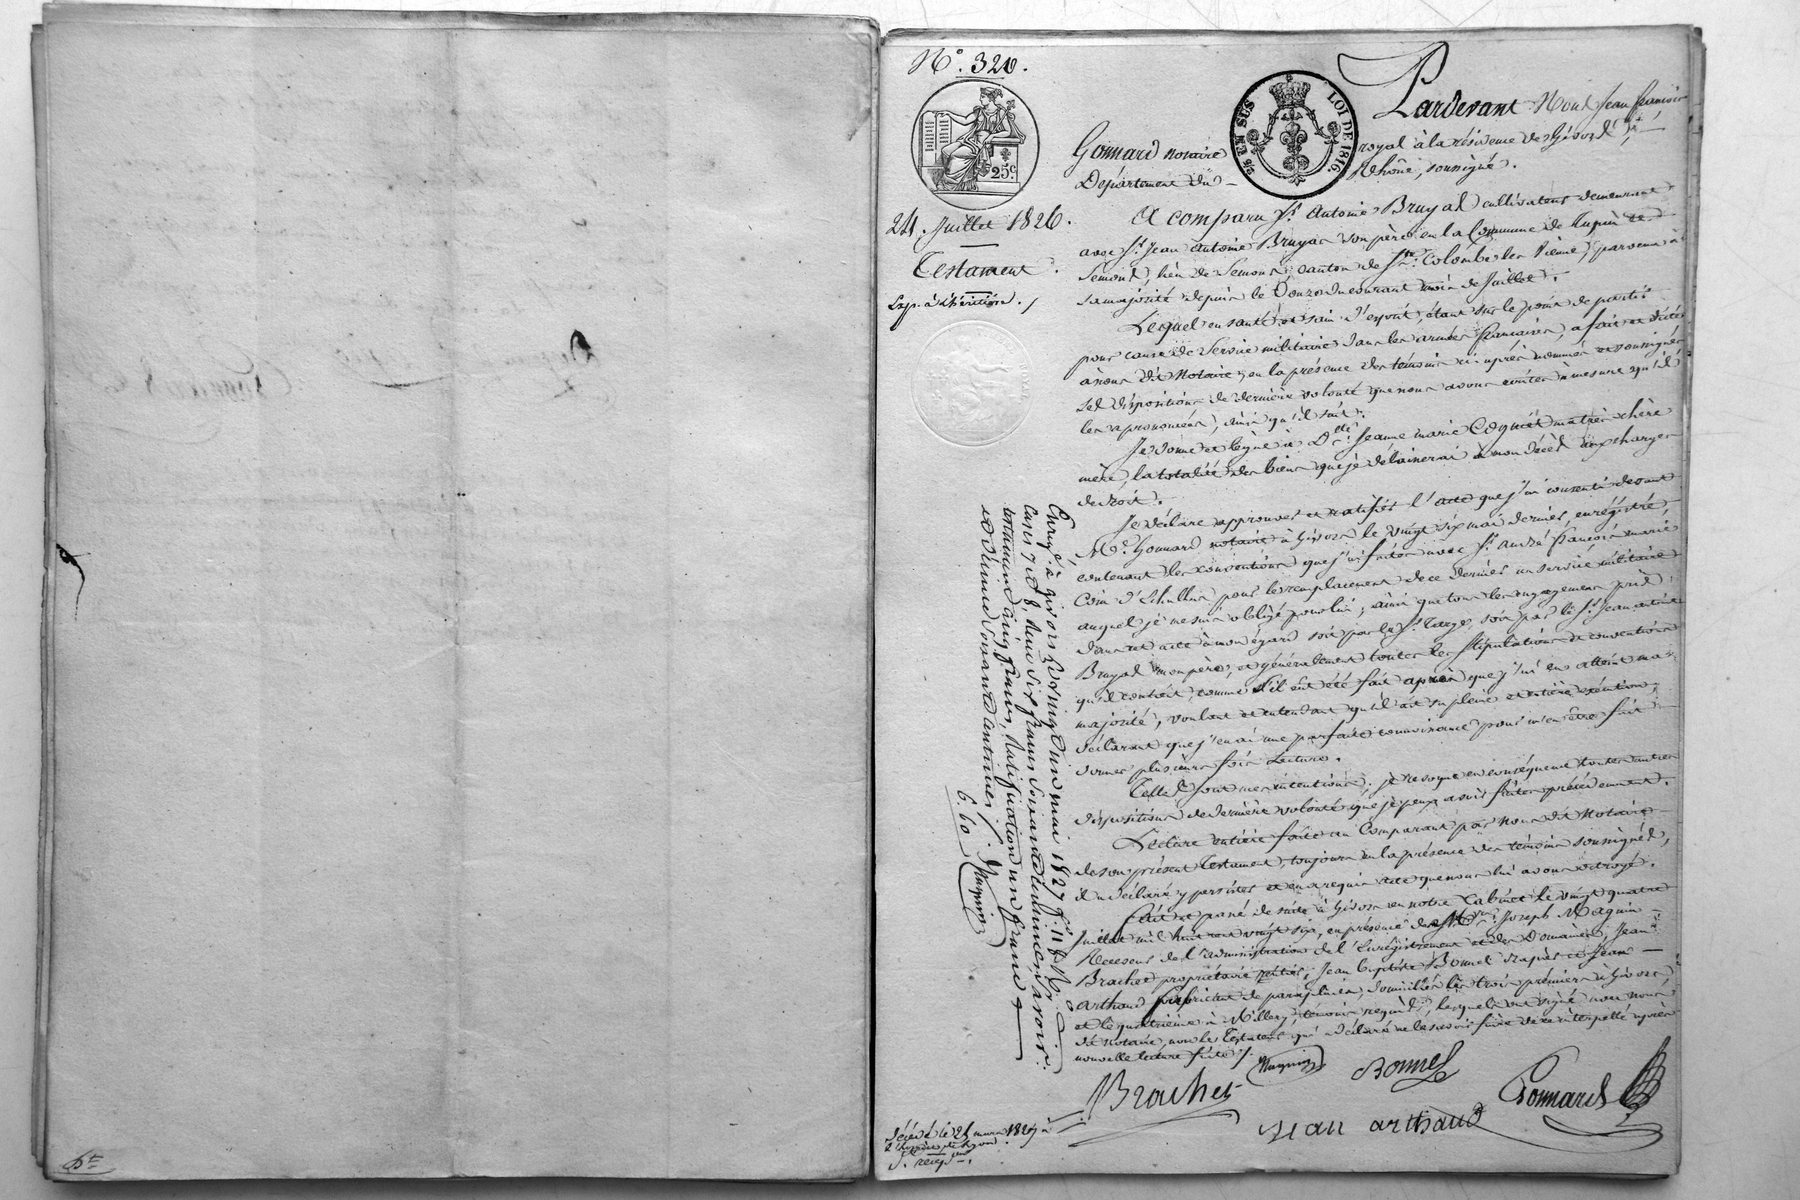 N.° 320.
25 EN SUS
LOI DE 1816.
25c
24. Juillet 1826.
Testament.
Exp. à l'héritière. /
Pardevant Nous Jean françois
Gonnard notaire royal à la résidence de Givors
Département du Rhône, soussigné.
A comparu Sr. Antoine Bruyas cultivateur demeurant
avec Sr. Jean Antoine Bruyas son père en la Commune de Tupin et
Semons, lieu de Semons, canton de Ste. Colombe les Vienne, parvenu à
sa majorité depuis le Douze du courant mois de Juillet.
Lequel en santé et sain d'esprit, étant sur le point de partir
pour cause de Service militaire dans les armées françaises, a fait et dicté
à nous dit Notaire, en la présence des témoins ci-après nommés et soussignés
ses dispositions de dernière volonté que nous avons écrites à mesure qu'il
les a prononcées, ainsi qu'il suit.
Je donne et lègue à Dlle. Jeanne marie Coquet ma très chère
mère, la totalité des biens que je délaisserai à mon décès aux charges
de droit.
Je déclare approuver et ratifier l'acte que j'ai consenti devant
Me. Gonnard notaire à Givors le vingt six mai dernier, enregistré,
contenant les conventions que j'ai faites avec Sr. André françois marie
pour le remplacement de ce dernier au service militaire
auquel je me suis obligé pour lui, ainsi que tous les engagemens pris
dans cet acte à mon égard soit par le Sr. soit par le Sr. Jean antoine
Bruyas mon père, et généralement toutes les stipulations et conventions
qu'il contient, comme s'il eut été fait après que j'ai eu atteint ma
majorité, voulant et entendant qu'il ait sa pleine et entière exécution,
déclarant que j'en ai une parfaite connoissance pour m'en être fait
donner plusieurs fois Lecture.
Telles sont mes intentions, je révoque en conséquence toutes autres
dispositions de dernière volonté que je peux avoir faites précédemment.
Lecture entière faite au Comparant par nous dit Notaire
de son présent Testament, toujours en la présence des témoins soussignés,
il a déclaré y persister et en a requis acte que nous lui avons octroyé.
Fait et passé de suite à Givors en notre Cabinet le vingt quatre
Juillet mil huit cent vingt six, en présence de Joseph Maguin
Receveur de l'administration de l'Enregistrement et des Domaines, Jean
Brachet propriétaire rentier, Jean Baptiste Bonnet et Jean
arthaud fabricant de parapluies, domiciliés les trois premiers à Givors,
et le quatrième à Millery, témoins requis, lesquels ont signé avec nous
dit notaire, non le Testateur qui a déclaré ne le savoir faire de ce interpellé après
nouvelle lecture faite /.
Brachet
Maguin
Bonnet
Gonnard
jean arthaud
Enregé. à givors le vingt un mai 1827 f°. 118 R°.
Cases 7 et 8, reçu six francs soixante centimes savoir:
testament cinq francs, Ratification un franc
et dixième soixante centimes /. Maguin
6. 60